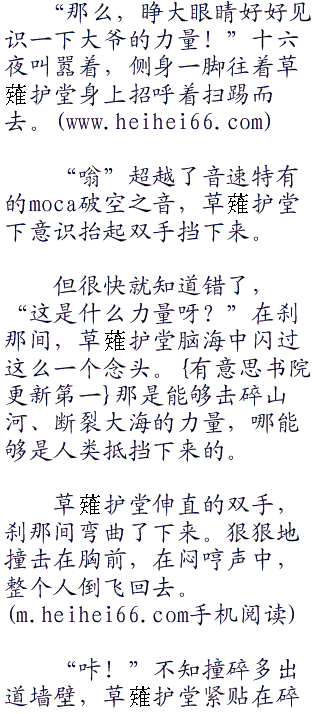 “那么，睁大眼睛好好见
识一下大爷的力量！”十六
夜叫嚣着，侧身一脚往着草
薙护堂身上招呼着扫踢而
去。(www.heihei66.com)
“嗡”超越了音速特有
的moca破空之音，草薙护堂
下意识抬起双手挡下来。
但很快就知道错了，
“这是什么力量呀？”在刹
那间，草薙护堂脑海中闪过
这么一个念头。{有意思书院
更新第一}那是能够击碎山
河、断裂大海的力量，哪能
够是人类抵挡下来的。
草薙护堂伸直的双手，
刹那间弯曲了下来。狠狠地
撞击在胸前，在闷哼声中，
整个人倒飞回去。
(m.heihei66.com手机阅读)
“咔！”不知撞碎多出
道墙壁，草薙护堂紧贴在碎